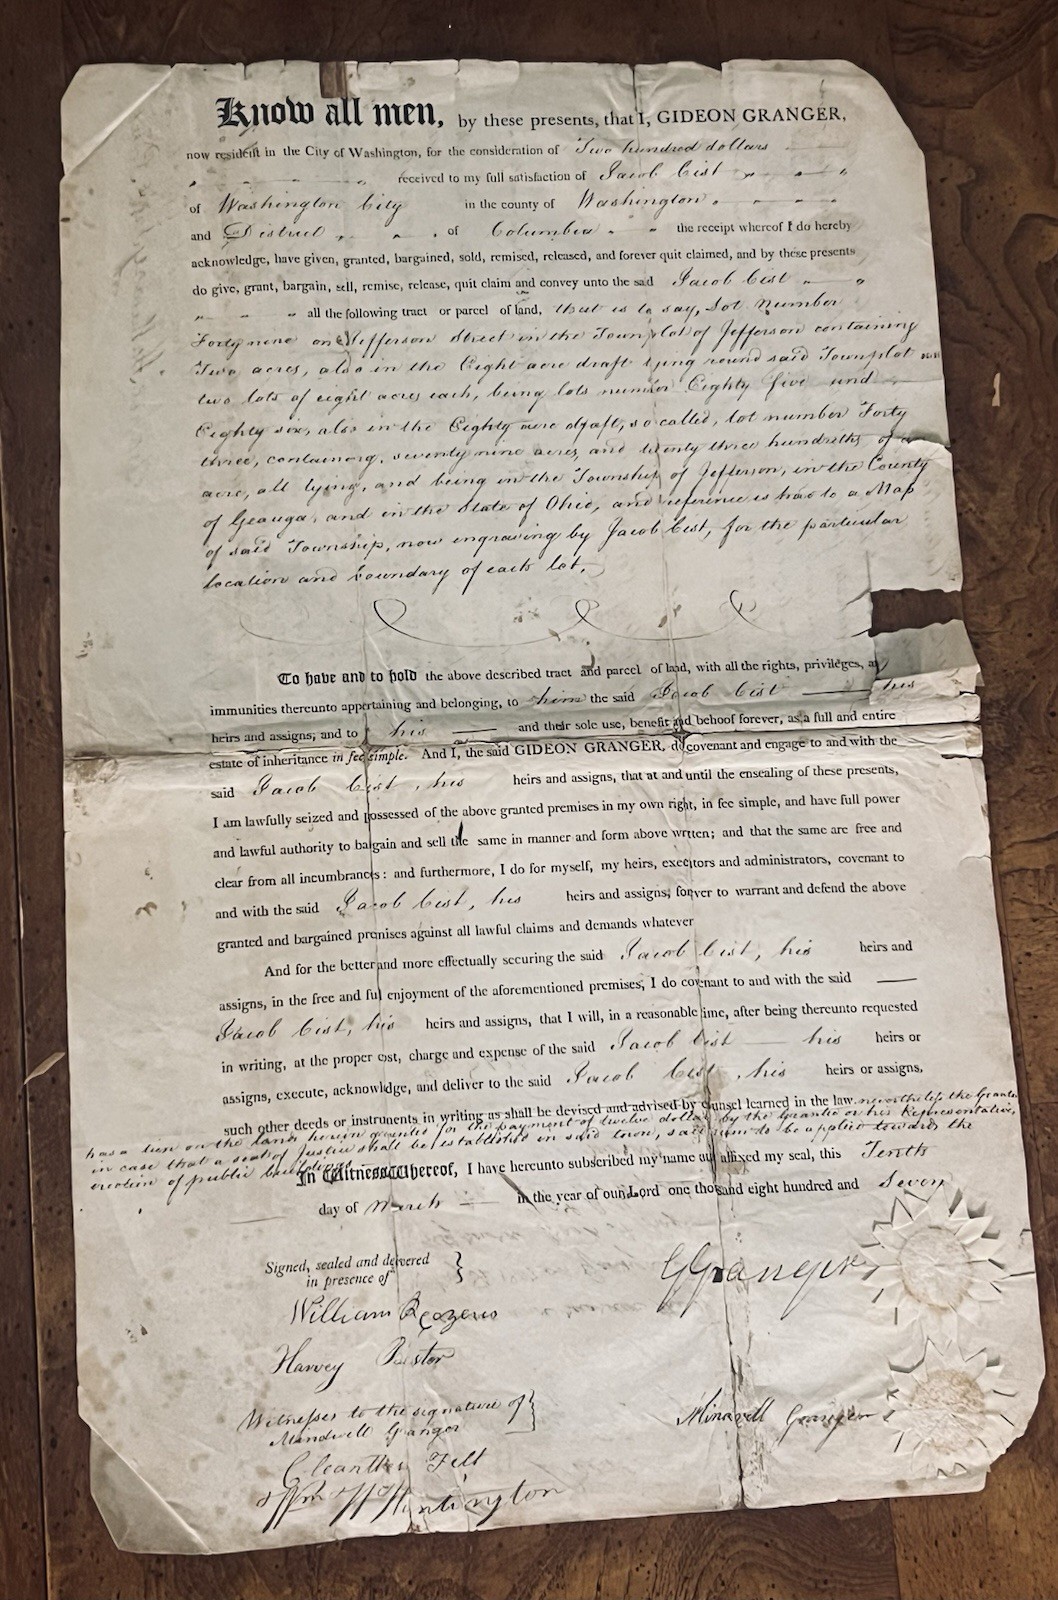 Know all men, by these presents, that I, GIDEON GRANGER,
now resident in the City of Washington, for the consideration of Two hundred dollars
received to my full satisfaction of Jacob Cist
of Washington City in the county of Washington
and District of Columbia the receipt whereof I do hereby
acknowledge, have given, granted, bargained, sold, remised, released, and forever quit claimed, and by these presents
do give, grant, bargain, sell, remise, release, quit claim and convey unto the said Jacob Cist
all the following tract or parcel of land, that is to say, Lot Number
Forty nine on Jefferson Street in the Town plot of Jefferson containing
Two acres, also in the Eight acre draft lying round said Townplot
two lots of eight acres each, being lots number Eighty five and
Eighty six, also in the Eighty acre draft, so called, lot number Forty
three, containing, seventy nine acres, and twenty three hundreths of a
acre, all lying, and being in the Township of Jefferson, in the County
of Geauga, and in the State of Ohio, and reference is had to a Map
of said Township, now engraving by Jacob Cist, for the particular
location and boundary of each lot.
To have and to hold the above described tract and parcel of land, with all the rights, privileges,
immunities thereunto appertaining and belonging, to him the said Jacob Cist — his
heirs and assigns, and to his — and their sole use, benefit and behoof forever, as a full and entire
estate of inheritance in fee simple. And I, the said GIDEON GRANGER, do covenant and engage to and with the
said Jacob Cist, his heirs and assigns, that at and until the ensealing of these presents,
I am lawfully seized and possessed of the above granted premises in my own right, in fee simple, and have full power
and lawful authority to bargain and sell the same in manner and form above written; and that the same are free and
clear from all incumbrances: and furthermore, I do for myself, my heirs, executors and administrators, covenant to
and with the said Jacob Cist, his heirs and assigns, forever to warrant and defend the above
granted and bargained premises against all lawful claims and demands whatever
And for the better and more effectually securing the said Jacob Cist, his heirs and
assigns, in the free and full enjoyment of the aforementioned premises, I do covenant to and with the said —
Jacob Cist, his heirs and assigns, that I will, in a reasonable time, after being thereunto requested
in writing, at the proper cost, charge and expense of the said Jacob Cist — his heirs or
assigns, execute, acknowledge, and deliver to the said Jacob Cist, his heirs or assigns,
such other deeds or instruments in writing as shall be devised and advised by counsel learned in the law. nevertheless the Grantor
has a lien on the lands herein granted for the payment of twelve dollars by the Grantee or his Representatives,
in case that a seat of Justice shall be established in said town, said sum to be applied towards the
erection of public buildings
In Witness Whereof, I have hereunto subscribed my name and affixed my seal, this Tenth
day of March — in the year of our Lord one thousand eight hundred and Seven
Signed, sealed and delivered
in presence of
GGranger
William
Harvey
Witnesses to the signature of
Mindwell Granger
Mindwell Granger
Cleanthes Felt
Huntington